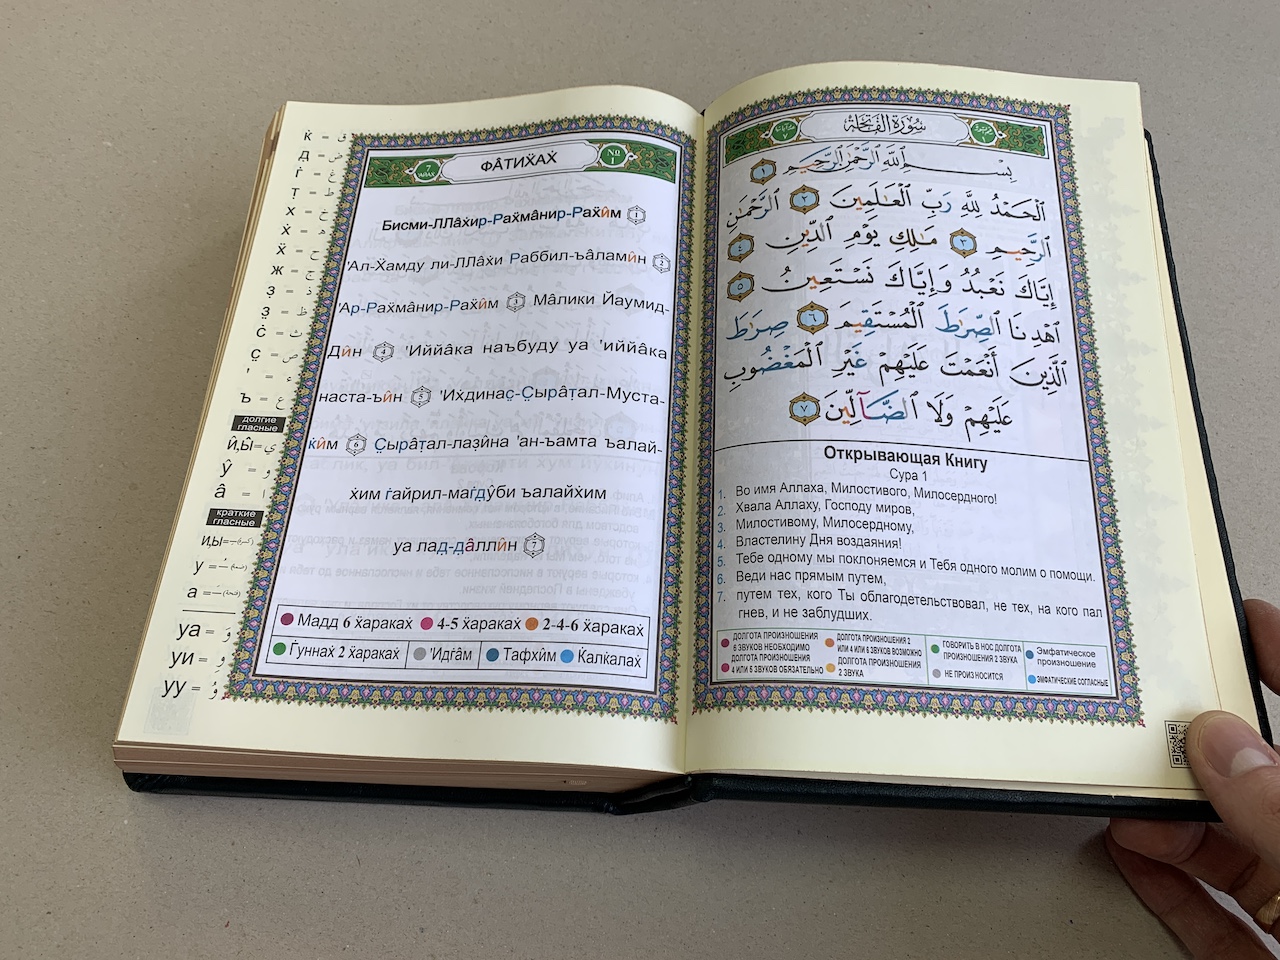 к̇ = ق
д̣ = ض
г̇ = غ
т̣ = ط
х = خ
х̇ = ه
х̈ = ح
ж = ج
з̣ = ذ
з̤ = ظ
с̇ = ث
с̣ = ص
' = ء
ъ = ع
долгие
гласные
й̂,ы̂ = ي
ŷ = و
â = ا
краткие
гласные
и,ы=
у =
а =
уа = وَ
уи = وِ
уу = وُ
7 АЙАХ
ФÂТИХ̈АХ̇
№ 1
Бисми-ЛЛâх̇ир-Рах̈мâнир-Рах̈ӣм 1
'Ал-Х̈амду ли-ЛЛâх̇и Раббил-ъâламӣн 2
'Ар-Рах̈мâнир-Рах̈ӣм 3 Мâлики Йаумид-
Дӣн 4 'Иййâка наъбуду уа 'иййâка
наста-ъӣн 5 'Их̇динас-Сырâт̣ал-Муста-
к̇ӣм 6 Сырâт̣ал-лазӣна 'ан-ъамта ъалай-
х̇им г̇айрил-маг̇дŷби ъалайх̇им
уа лад-дâллӣн 7
Мадд 6 х̈араках̇ 4-5 х̈араках̇ 2-4-6 х̈араках̇
Г̇уннах̇ 2 х̈араках̇ 'Идг̇âм Тафхӣм К̇алк̇алах̇
سُورَةُ الْفَاتِحَةِ
بِسْمِ ٱللَّهِ ٱلرَّحْمَٰنِ ٱلرَّحِيمِ ١
ٱلْحَمْدُ لِلَّهِ رَبِّ ٱلْعَٰلَمِينَ ٢ ٱلرَّحْمَٰنِ
ٱلرَّحِيمِ ٣ مَٰلِكِ يَوْمِ ٱلدِّينِ ٤
إِيَّاكَ نَعْبُدُ وَإِيَّاكَ نَسْتَعِينُ ٥
ٱهْدِنَا ٱلصِّرَٰطَ ٱلْمُسْتَقِيمَ ٦ صِرَٰطَ
ٱلَّذِينَ أَنْعَمْتَ عَلَيْهِمْ غَيْرِ ٱلْمَغْضُوبِ
عَلَيْهِمْ وَلَا ٱلضَّآلِّينَ ٧
Открывающая Книгу
Сура 1
1. Во имя Аллаха, Милостивого, Милосердного!
2. Хвала Аллаху, Господу миров,
3. Милостивому, Милосердному,
4. Властелину Дня воздаяния!
5. Тебе одному мы поклоняемся и Тебя одного молим о помощи.
6. Веди нас прямым путем,
7. путем тех, кого Ты облагодетельствовал, не тех, на кого пал
гнев, и не заблудших.
ДОЛГОТА ПРОИЗНОШЕНИЯ
6 ЗВУКОВ НЕОБХОДИМО
ДОЛГОТА ПРОИЗНОШЕНИЯ
4 ИЛИ 6 ЗВУКОВ ОБЯЗАТЕЛЬНО
ДОЛГОТА ПРОИЗНОШЕНИЯ 2
ИЛИ 4 ИЛИ 6 ЗВУКОВ ВОЗМОЖНО
ДОЛГОТА ПРОИЗНОШЕНИЯ
2 ЗВУКА
ГОВОРИТЬ В НОС ДОЛГОТА
ПРОИЗНОШЕНИЯ 2 ЗВУКА
НЕ ПРОИЗНОСИТСЯ
Эмфатическое
произношение
ЭМФАТИЧЕСКИЕ СОГЛАСНЫЕ